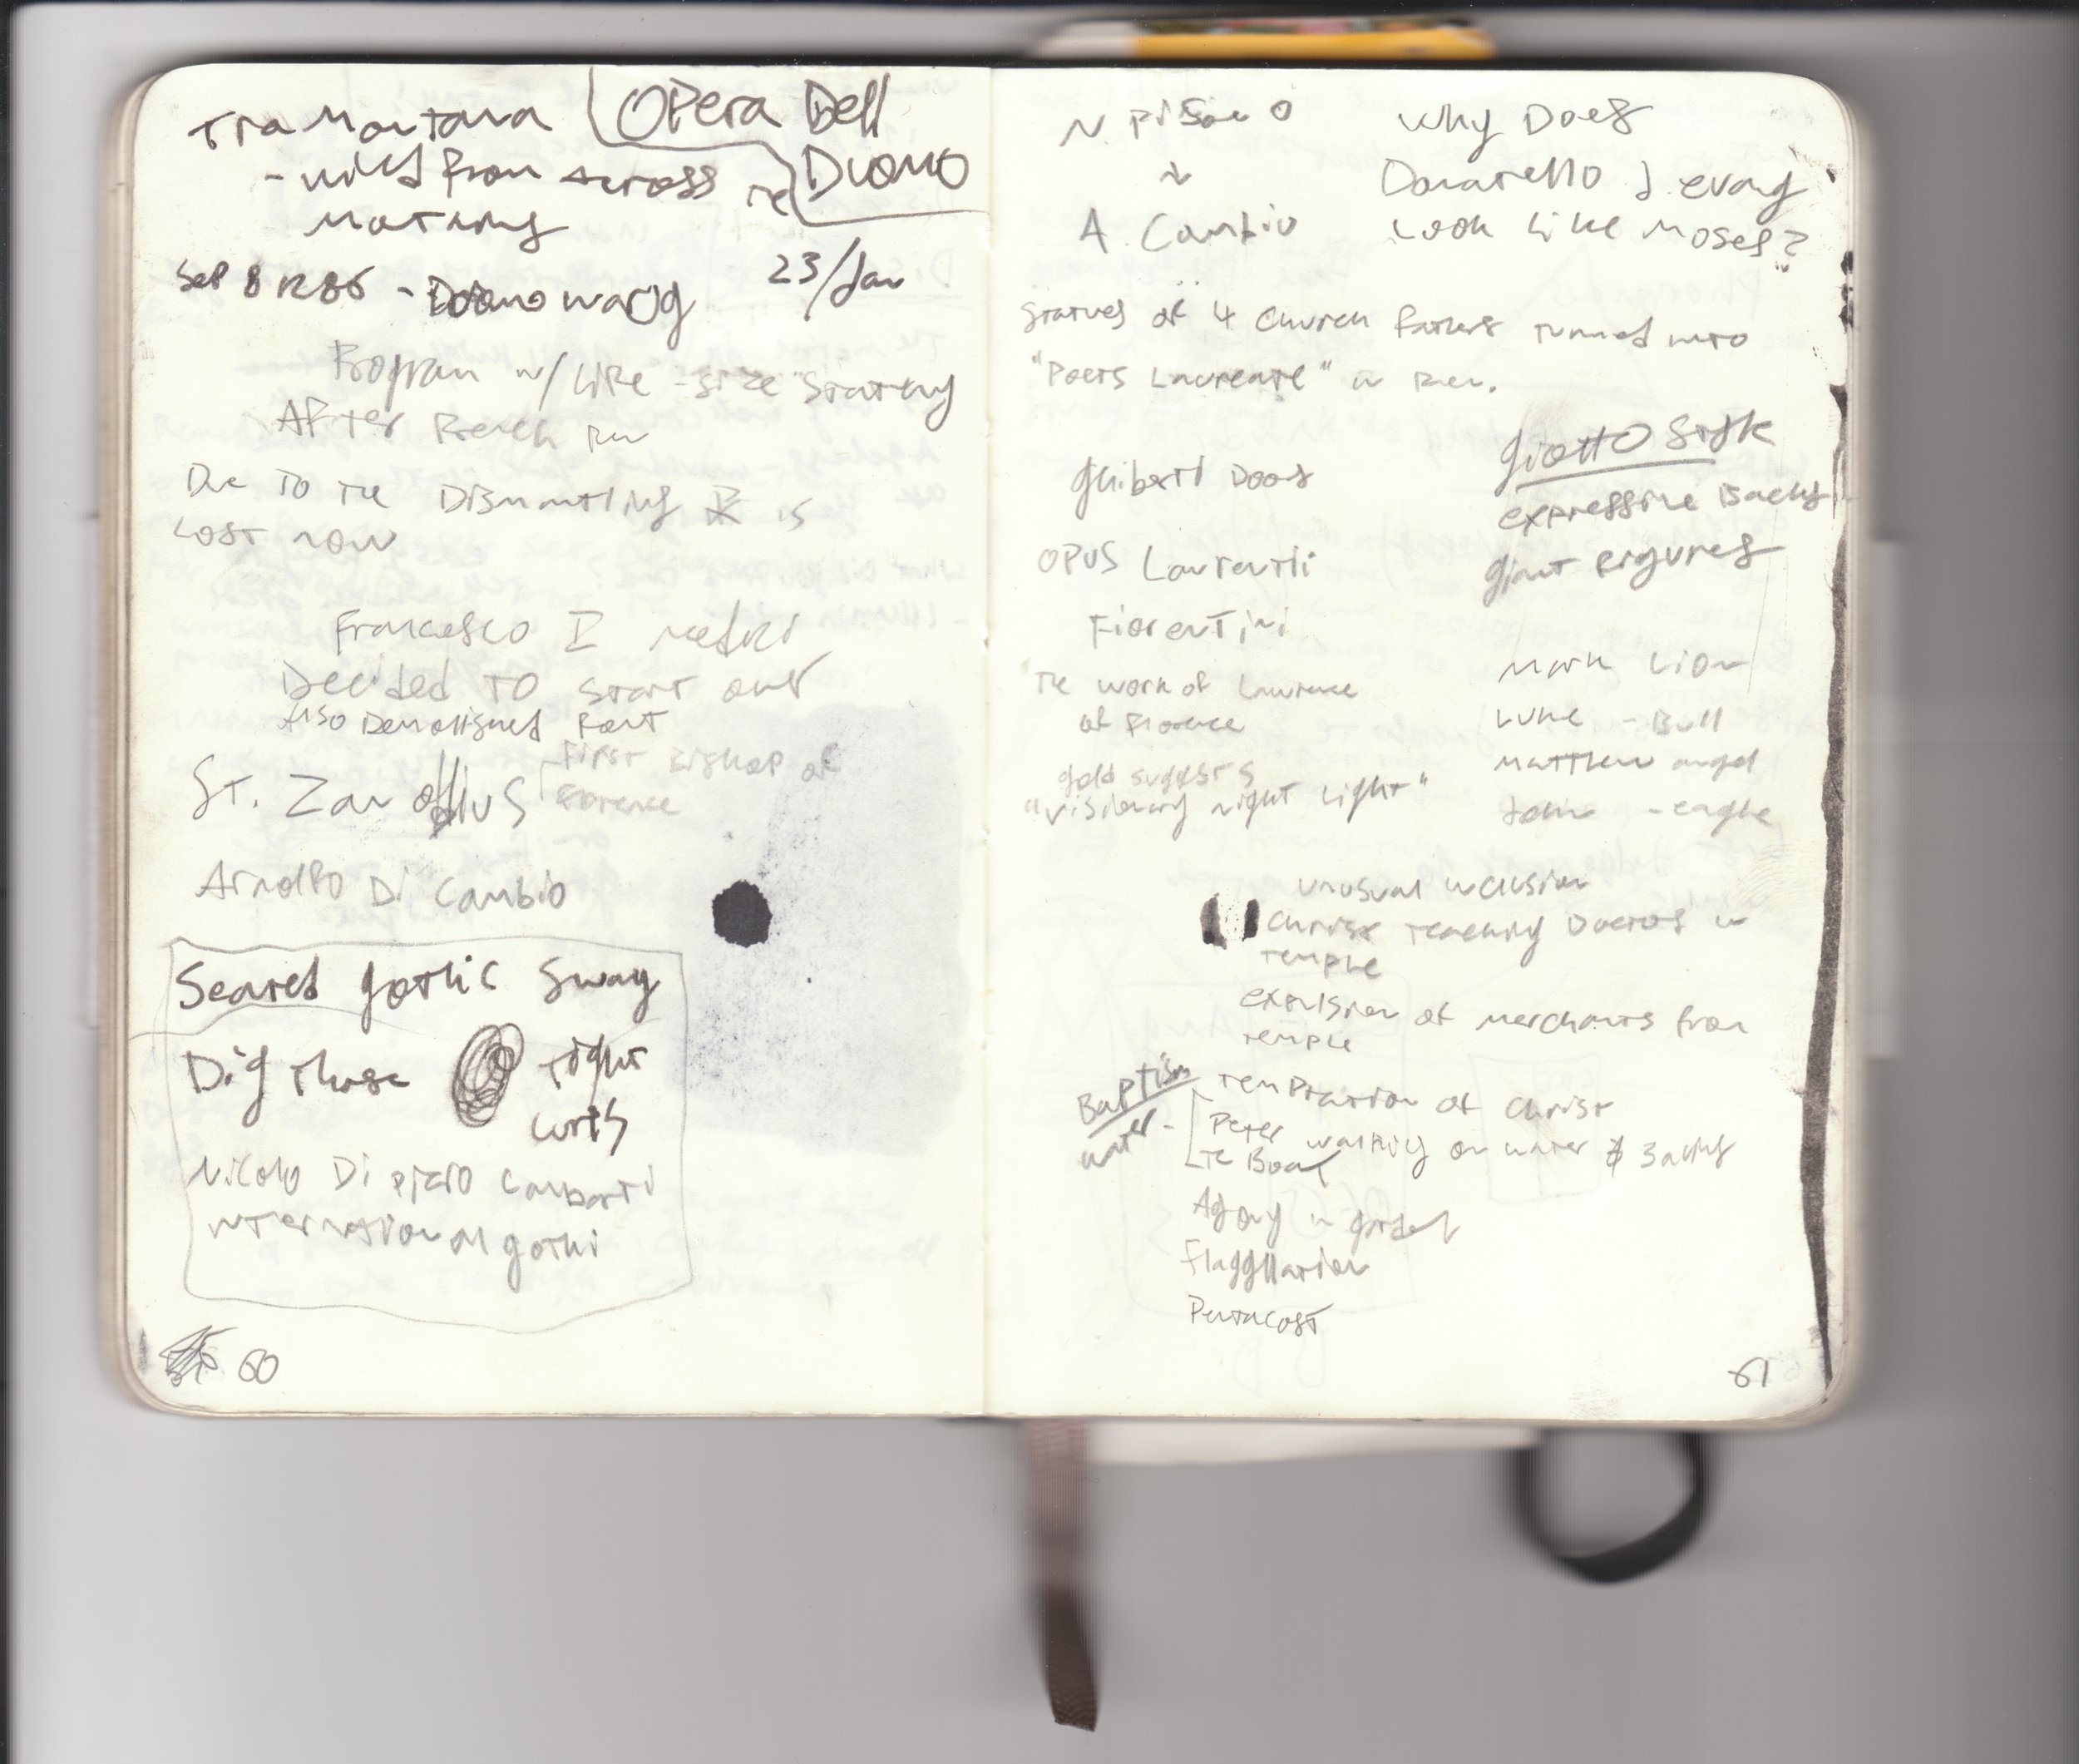 Tramontana
- wind from across the
mountains
Opera Dell
Duomo
Sep 8 1286 -
23/Jan
Program w/ life-size statues
After French
Due to the Dismantling is
Lost now
Francesco I Medici
Decided TO start over
Also Demolished Part
ST. Zanobius
First Bishop of
Florence
Arnolfo Di Cambio
Seated gothic Sway
Dig those tight
curls
Nicolo Di Piero Lamberti
international gothi
60
N. Pisano
A. Cambio
Why Does
Donatello J. evang
Look Like Moses?
Statues of 4 Church Fathers turned into
"Poets Laureate" in Ren.
Ghiberti Doors
Giotto
expressive Backs
giant Figures
OPUS Laurentii
Fiorentini
"The work of Lawrence
of Florence
gold suggests
"visionary night light"
Mark Lion
Luke - Bull
Matthew angel
John - eagle
unusual inclusion
Christ teaching Doctors in
temple
expulsion of merchants from
temple
Baptism
water -
Temptation of Christ
Peter walking on water
The Boat
Agony in garden
Flaggllation
Pentacost
61